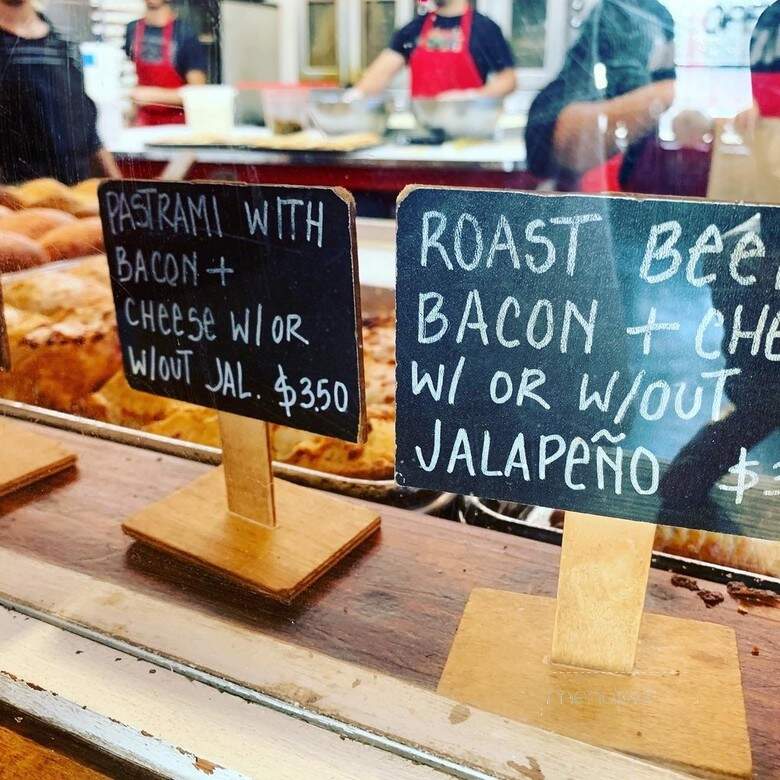 PASTRAMI WITH
BACON +
CHEESE W/ OR
W/OUT JAL. $3.50
ROAST BEE
BACON + CHE
W/ OR W/OUT
JALAPEÑO $3